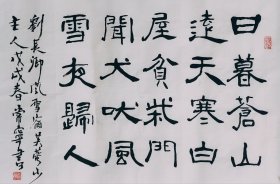 日暮蒼山
遠天寒白
屋貧柴門
聞犬吠風
雪夜歸人
劉長卿風雪宿芙蓉山
主人戊戌春